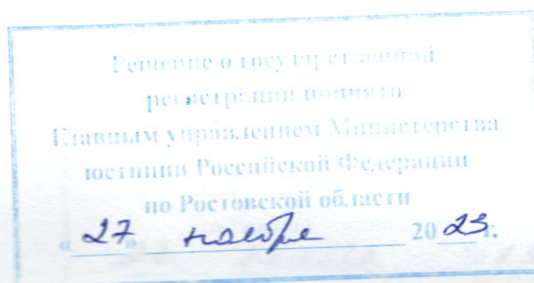 Решение о государственной
регистрации принято
Главным управлением Министерства
юстиции Российской Федерации
по Ростовской области
«27» ноября 2023 г.